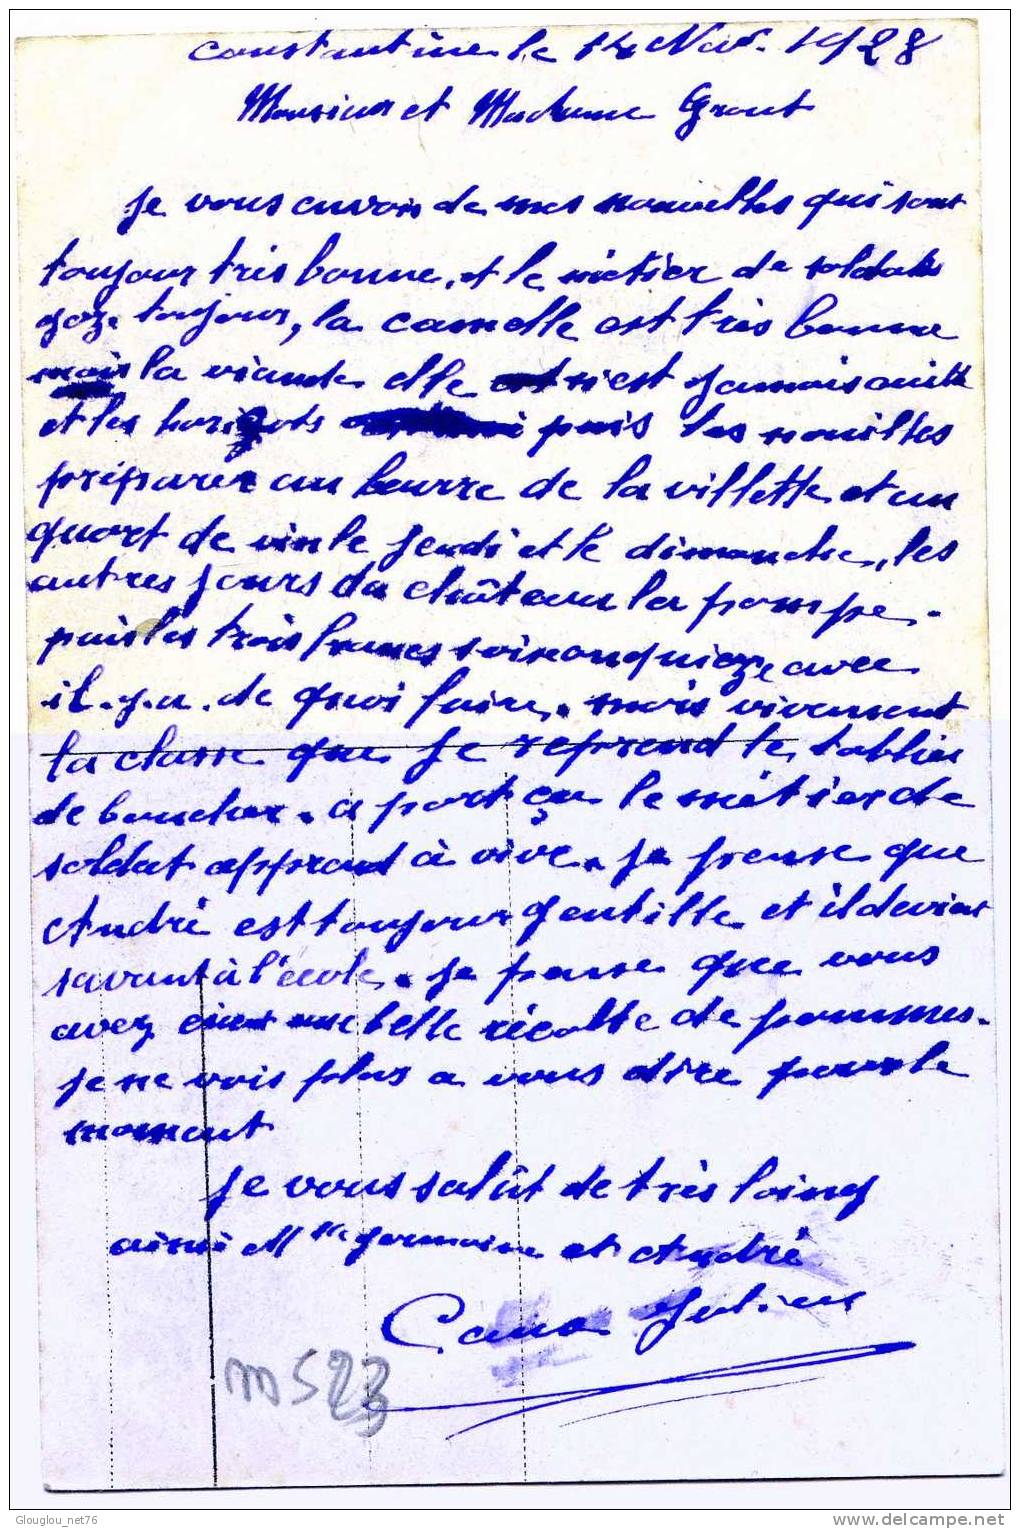 Constantine le 14 Nov. 1928
Monsieur et Madame Grout
Je vous envoi de mes nouvelles qui sont
toujour très bonne, et le métier de soldats
gaze toujour, la camelle est très bonne
mais la viande elle n'est jamais cuitte
et les haricots puis les nouilles
préparer au beurre de la villette et un
quart de vin le jeudi et le dimanche, les
autres jours du château la pompe.
puis les trois francs soixan quinze avec
il.y.a. de quoi faire. mais vivement
la classe que je reprend le tablier
de boucher. a part ça le métier de
soldat apprend à vivre. je pense que
André est toujour gentille et il devient
savant à l'école. je pense que vous
avez eut une belle récolte de pommes.
je ne vois plus a vous dire pour le
moment
Je vous salût de très loing
ainsi Mlle germaine et André
Julien
m S23
Glouglou_net76
www.delcampe.net